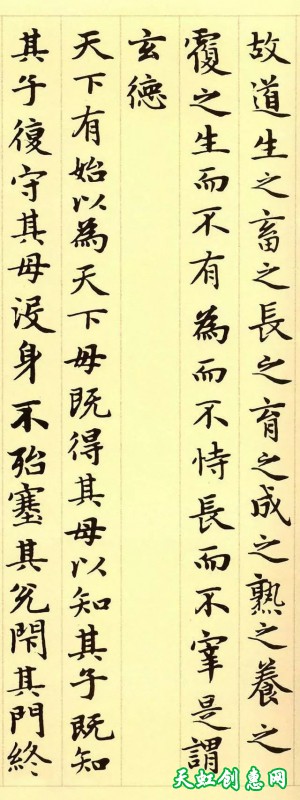 故道生之畜之長之育之成之熟之養之
覆之生而不有為而不恃長而不宰是謂
玄德
天下有始以為天下母既得其母以知其子既知
其子復守其母沒身不殆塞其兌閇其門終
天虹创惠网